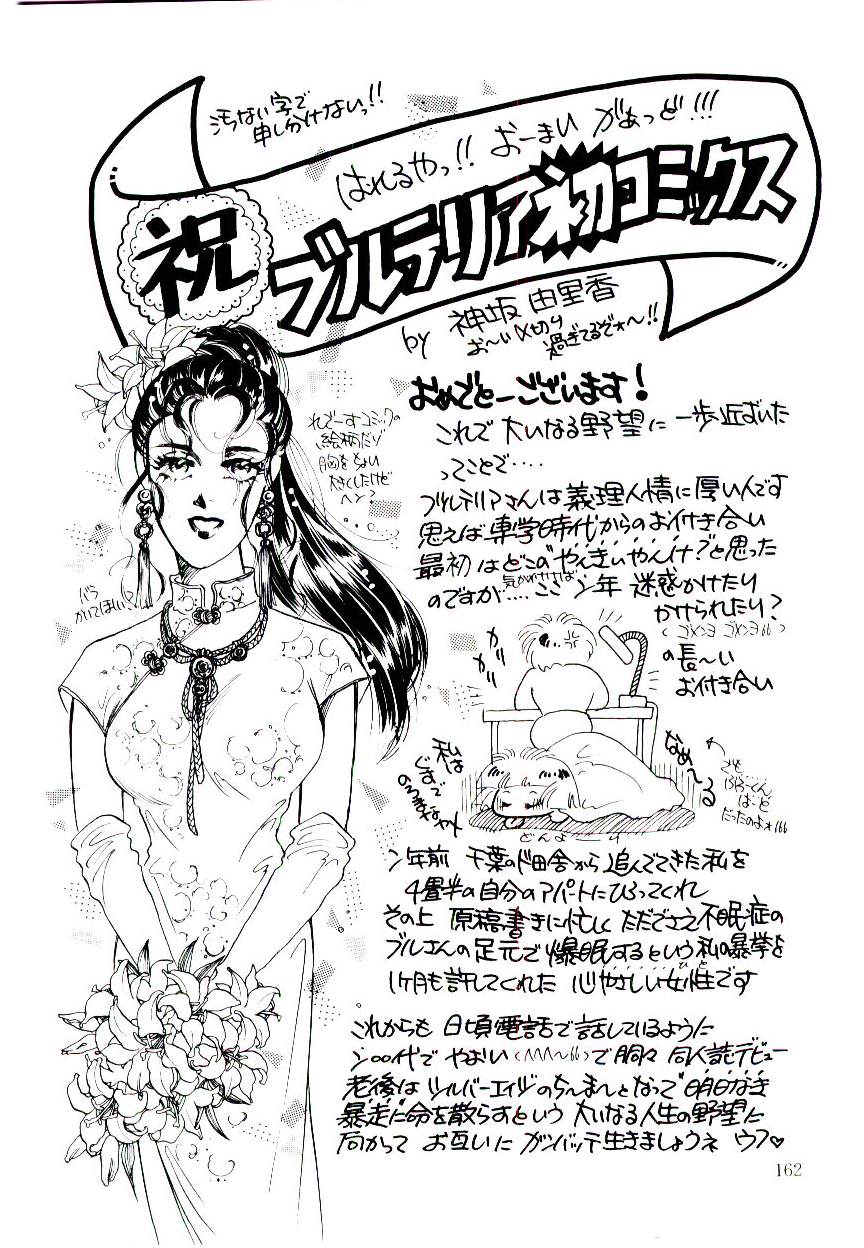 汚ない字で
申し分けないっ!!
はれるやっ!! おーまい がぁっど!!!
祝
ブルテリア初コミックス
by 神坂 由里香
お〜い〆切り
過ぎてるぞォ〜!!
おめでとーございます!
これで 大いなる野望に 一歩近ずいた
ってことで‥‥
れでーすコミックの
絵柄だゾ
ブルテリアさんは義理人情に厚い人です
思えば専学時代からのお付き合い
最初はどこの"やんきぃやんけ?"と思った
のですが‥‥気がつけば ここン年 迷惑かけたり
かけられたり?
(ゴメンヨ ゴメンヨ)
の長〜い
お付き合い
バラ
かいてほしい?
ガリ
ガリ
私は
ぐずで
なめ〜る
どんよーり
だったのよォ
ン年前 千葉のド田舎から 追んでてきた私を
4畳半の自分のアパートにひろってくれ
その上 原稿書きに忙しく ただでさえ不眠症の
ブルさんの足元で 爆眠するという 私の暴挙を
1ヶ月も許してくれた 心やさしい女性です
ひと
これからも 日頃電話で話しているように
ン○○代で やおい で 同人誌デビュー
老後は シルバーエイジのちーまーとなって"明日なき
暴走"に命を散らすという 大いなる人生の野望に
向かって お互いに ガンバッテ生きましょうネ ウフ♡
162